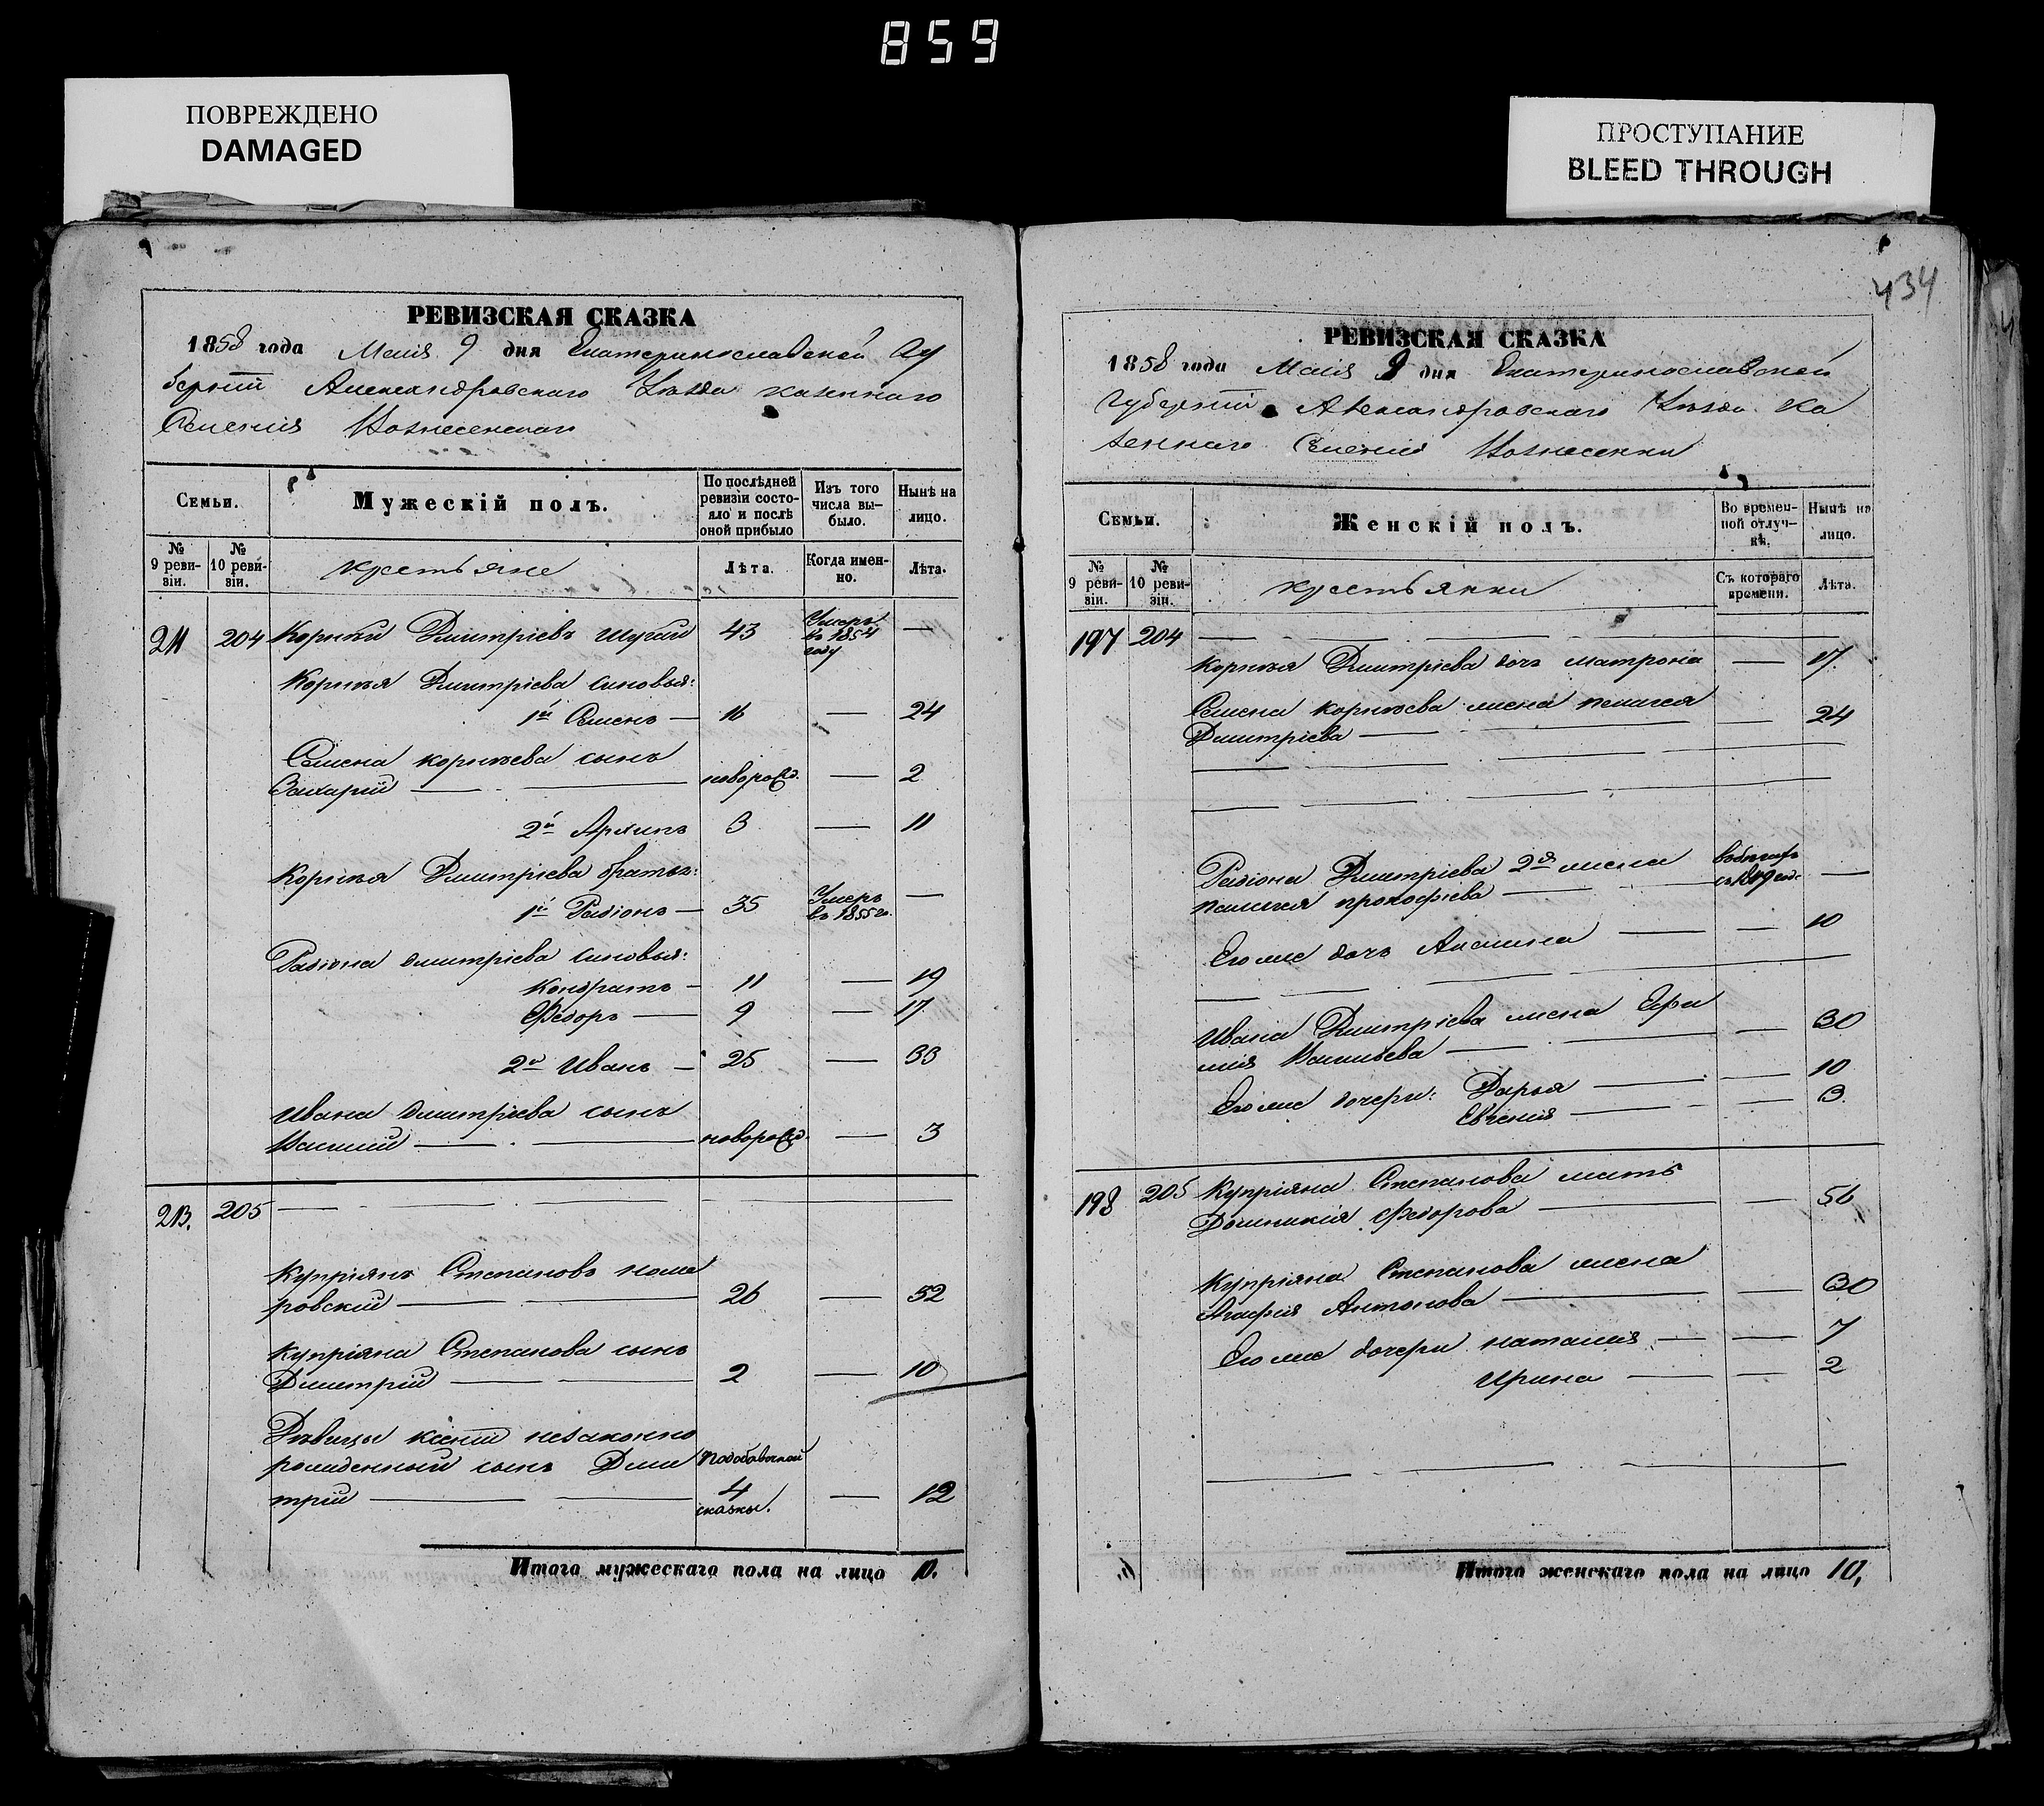 859
ПОВРЕЖДЕНО
DAMAGED
ПРОСТУПАНИЕ
BLEED THROUGH
РЕВИЗСКАЯ СКАЗКА
1858 года Маия 9 дня Екатеринославской Гу
берніи Александровскаго Уѣзда казеннаго
Селенія
Семьи.
Мужескій полъ.
По послѣдней ревизіи состо-
яло и послѣ оной прибыло
Изъ того числа вы-
было.
Нынѣ на лицо.
№ 9 реви-
зіи.
№ 10 реви-
зіи.
крестьяне
Лѣта.
Когда имен-
но.
Лѣта.
211 204 Корнѣй Дмитріевъ 43 Умеръ въ 1854 году —
Корнѣя Дмитріева сыновья:
1й Семенъ — 16 — 24
Семена корнѣева сынъ
Захарій — новорожд. — 2
2й Архипъ 3 — 11
Корнѣя Дмитріева братья:
1й Радіонъ — 35 Умеръ въ 1855 го. —
Радіона дмитріева сыновья:
Кондратъ — 11 — 19
Федоръ — 9 — 17
2й Иванъ — 25 — 33
Ивана дмитріева сынъ
Василий — новорожд. — 3
213. 205 —
Купріянъ Степановъ кома
ровскій — 26 — 52
Купріяна Степанова сынъ
Дмитрій — 2 — 10
Дѣвицы Ксеніи незаконно
рожденный сынъ Дми
трій — Подобавочной 4 сказкы. — 12
Итого мужескаго пола на лицо 10.
434
РЕВИЗСКАЯ СКАЗКА
1858 года Маия 9 дня Екатеринославской
Губерніи Александровскаго Уѣзда Ка
зеннаго Селенія Вознесенки
Семьи.
Женскій полъ.
Во времен-
ной отлуч-
кѣ.
Нынѣ на лицо.
№ 9 реви-
зіи.
№ 10 реви-
зіи.
крестьянки
Съ котораго времени.
Лѣта.
197 204 —
Корнѣя Дмитріева дочь матрона — 17
Семена корнѣева жена пелагея
Дмитріева — 24
Радіона Дмитріева 2я жена
пелагея прокофіева — въ бѣгахъ съ 1849 год. —
Его же дочь Акилина — 10
Ивана Дмитріева жена Ефи
мія Васильева — 30
Его же дочери: Дарья — 10
Евгенія — 3.
198 205 Купріяна Степанова мать
Домникія Федорова — 56
Купріяна Степанова жена
Агафія Антонова — 30
Его же дочери наталия — 7
Ирина — 2
Итого женскаго пола на лицо 10,